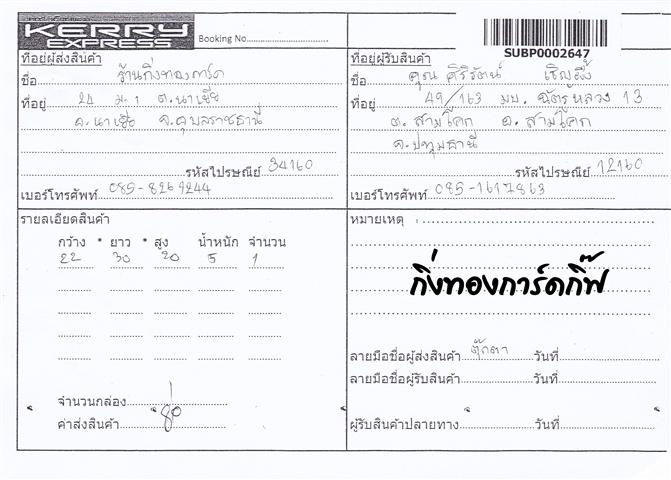 KERRY
EXPRESS
Booking No.
SUBP0002647
ที่อยู่ผู้ส่งสินค้า
ชื่อ ร้านกิ่งทองการ์ด
ที่อยู่ 24 ม.1 ต.นาเยีย
อ.นาเยีย จ.อุบลราชธานี
รหัสไปรษณีย์ 34160
เบอร์โทรศัพท์ 085-8269244
ที่อยู่ผู้รับสินค้า
ชื่อ คุณ ศิริรัตน์
ที่อยู่ 49/163 มบ. ฉัตรหลวง 13
ต. สามโคก อ. สามโคก
จ.ปทุมธานี
รหัสไปรษณีย์ 12160
เบอร์โทรศัพท์ 085-1617863
รายละเอียดสินค้า
กว้าง * ยาว * สูง น้ำหนัก จำนวน
22 30 20 5 1
จำนวนกล่อง 1
ค่าส่งสินค้า 80
หมายเหตุ :
กิ่งทองการ์ดกิ๊ฟ
ลายมือชื่อผู้ส่งสินค้า ตุ๊กตา วันที่
ลายมือชื่อผู้รับสินค้า วันที่
ผู้รับสินค้าปลายทาง วันที่